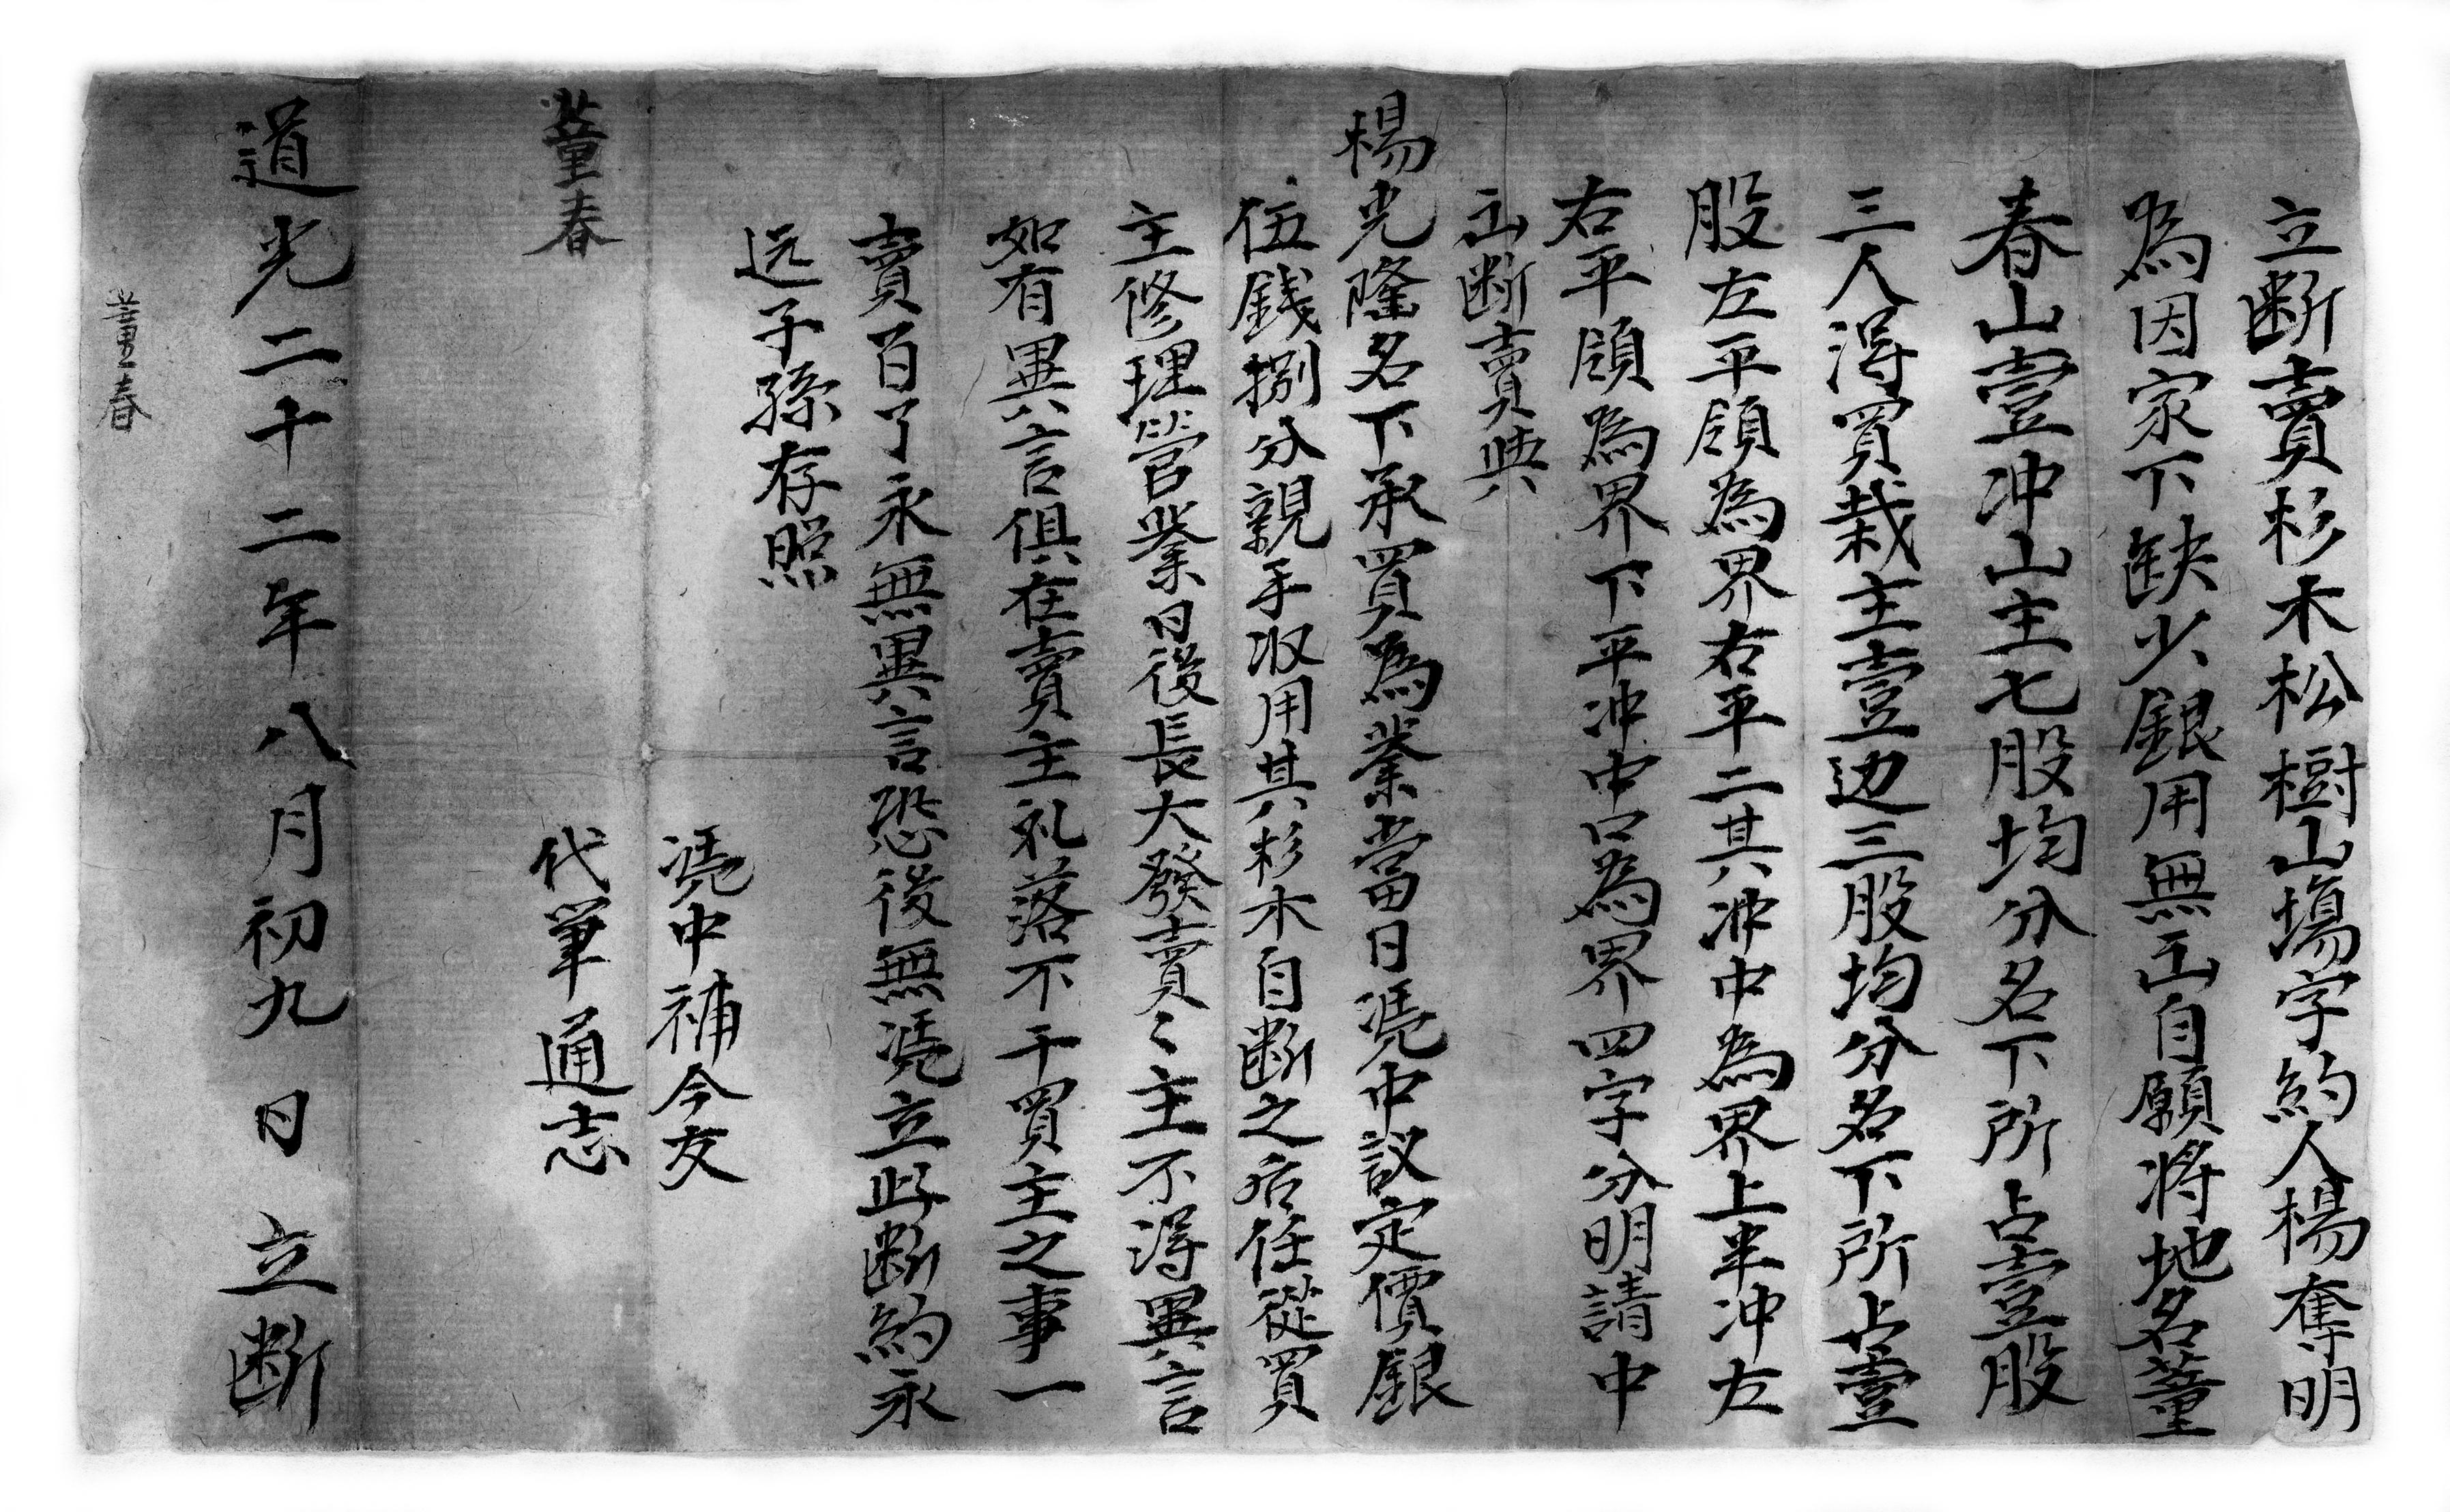 立断賣杉木松樹山塲字約人楊奪明
為因家下缺少銀用無出自願將地名董
春山壹冲山主七股均分名下所占壹股
三人淂買栽主壹边三股均分名下所占壹
股左平領為界右平二其冲中為界上半冲左
右平領為界下平冲中口為界四字分明請中
出断賣與
楊光隆名下承買為業當日凴中議定價銀
伍銭捌分親手収用其杉木自断之后任從買
主修理營業日後長大發賣〻主不淂異言
如有異言俱在賣主礼落不干買主之事一
賣百了永無異言恐後無凴立此断約永
远子孫存照
凴中補今友
代筆通志
董春
道光二十二年八月初九日立断
董春